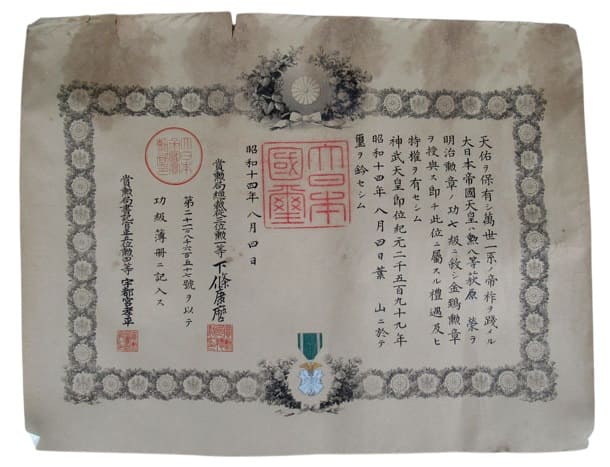 天佑ヲ保有シ萬世一系ノ帝祚ヲ踐メル
大日本帝國天皇ハ勲八等萩原榮ヲ
明治勲章ノ功七級ニ敍シ金鵄勲章
ヲ授與ス即チ此位ニ屬スル禮遇及ヒ
特權ヲ有セシム
神武天皇即位紀元二千五百九十九年
昭和十四年八月四日葉山ニ於テ
璽ヲ鈐セシム
大日本
國璽
昭和十四年八月四日
賞勲局總裁從三位勲一等下條康麿
六百五十七號ヲ以テ
功級簿冊ニ記入ス
賞勲局書記官 勲四等宇都宮孝平